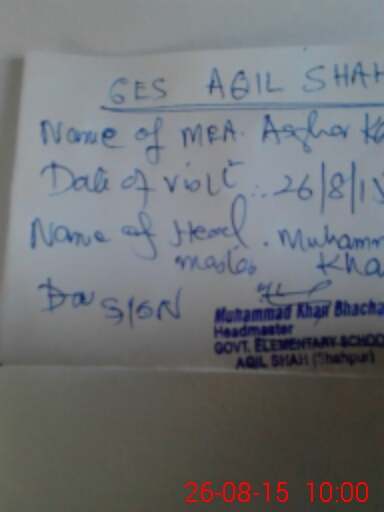 GES AQIL SHAH
Name of MEA. Asghar Kh
Date of visit :. 26/8/15
Name of Head . Muhamm
master Kha
SIGN
Muhammad Khair Bhacha
Headmaster
GOVT. ELEMENTARY SCHOO
AQIL SHAH (Shahpur)
26-08-15 10:00